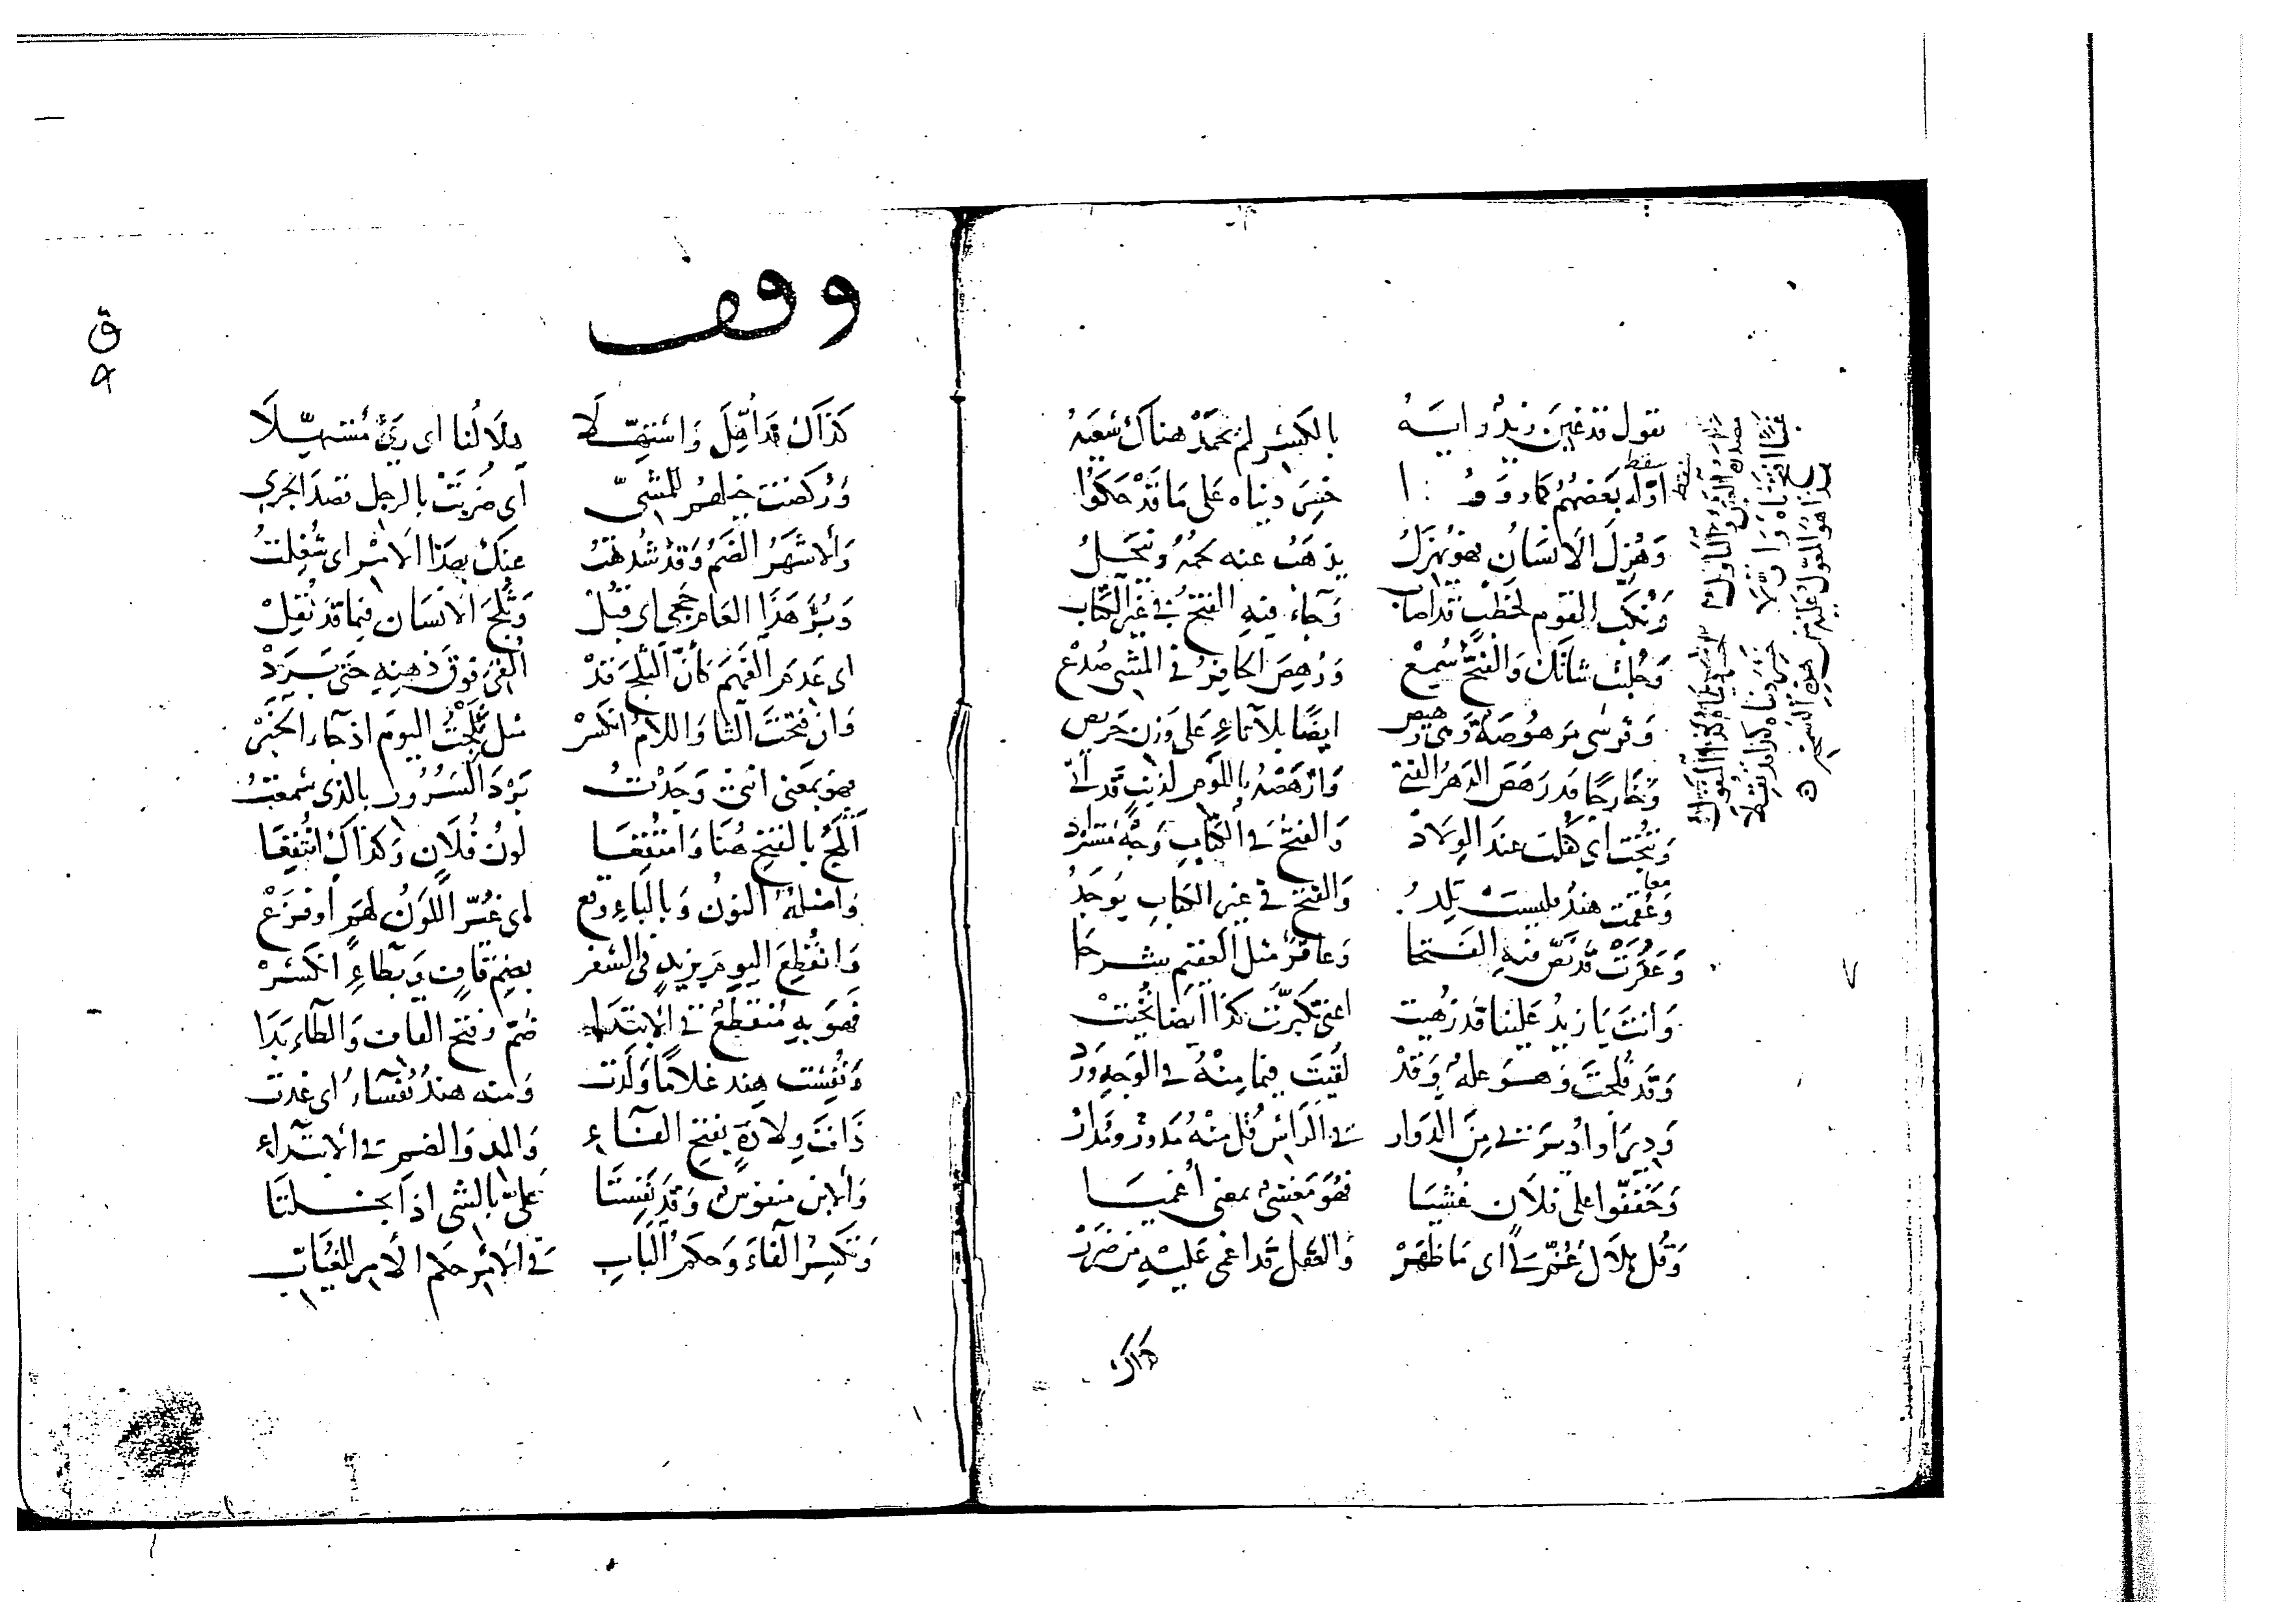 تقول قد غبن زيد رايه بالكسر لم يحمد هناك سعيه
اوله بعضهم كما رووا خسر دنياه على ما قد حكوا
وهزل الانسان فهو يهزل يذهب عنه لحمه وينحل
ونكب القوم لخطب قد اصاب وجاء فيه الفتح في غير الكتاب
وحلبت شاتك والفتح سمع ورهص الحافر في المشي صدع
وفرس مرهوصة ومن رهيص ايضا بلا تاء على وزن حريص
وخارجا قد رهص الدهر الفتى وارهصه باللوم لذنب قد اتى
ونتجت اي هلت عند الولاد والفتح في الكتاب وجه مستراد
وعقمت هند فليست تلد والفتح في غير الكتاب يوجد
معا
وعقرت قد نص فيه الفتحا وعاقر مثل العقيم شرحا
وانت يا زيد علينا قد زهيت اعني تكبرت كذا ايضا نخيت
وقد فلجت وهو عله وقد لقيت فيما منه في الوجه ورد
ودير او ادير بي من الدوار في الراس قل منه مدور ومدار
وخففوا على فلان غشيا فهو مغشي بمعنى اغميا
وقل هلال غم لي اي ما ظهر والعقل قد اغمي عليه من ضرر
سقط
سقط
هذا هو المعول عليه من هذه النسخه
كذاك
وقف
ق
٩
كذاك قد اهل واستهلا هلالنا اي رئي مستهلا
وركضت خيلهم للمشي اي ضربت بالرجل قصد الجري
والاشهر الضم وقد شدهت عنك بهذا الامر اي شغلت
وبر هذا العام حجي اي قبل وثلج الانسان فيما قد نقل
اي عدم الفهم كان الثلج قد القي فوق ذهنه حتى برد
وان فتحت الثا واللام انكسر مثل ثلجت اليوم اذ جاء الخبر
فهو بمعنى انني وجدت برد السرور بالذي سمعت
اثلج بالفتح هنا وامتقعا لون فلان وكذاك انتقعا
واصله النون وبالباء وقع اي غير اللون لهم او فزع
وانقطع اليوم بزيد في السفر بضم قاف وبطاء انكسر
فهو به منقطع في الابتدا ضم وفتح القاف والطاء بدا
ونفست هند غلاما ولدت ومنه هند نفساء اي غدت
ذات ولادة بفتح الفاء والمد والضم في الابتداء
والابن منفوس وقد نفستا علي بالشي اذا بخلتا
وتكسر الفاء وحكم الباب في الامر حكم الامر للغياب